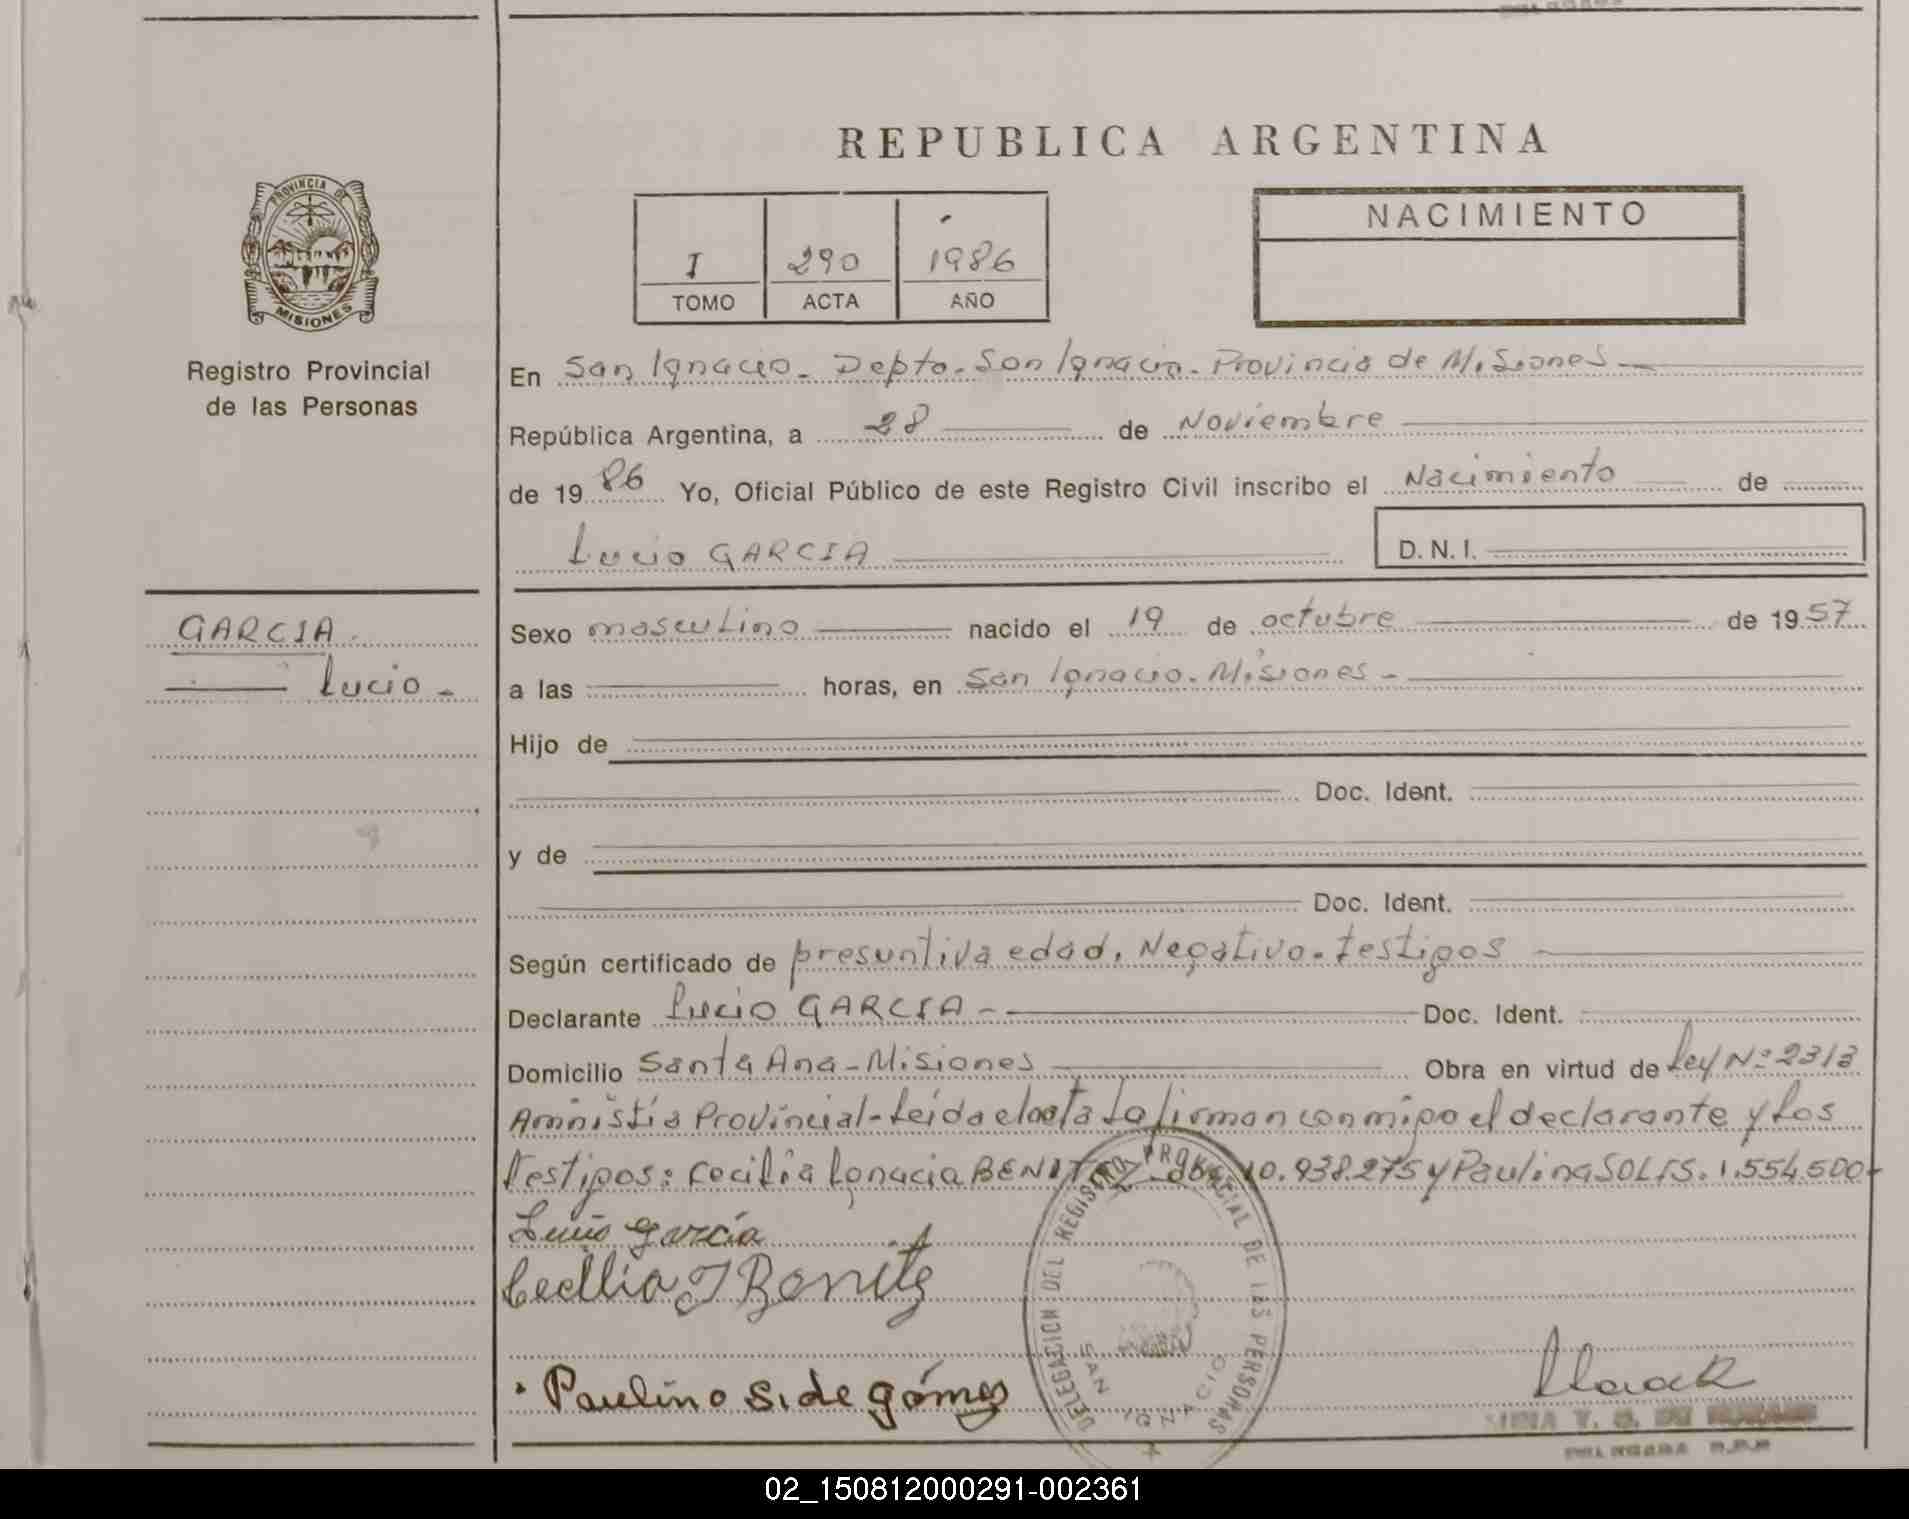 REPUBLICA ARGENTINA
PROVINCIA DE
MISIONES
Registro Provincial
de las Personas
I 290 1986
TOMO ACTA AÑO
NACIMIENTO
En San Ignacio - Depto. San Ignacio - Provincia de Misiones
República Argentina, a 28 de Noviembre
de 1986 Yo, Oficial Público de este Registro Civil inscribo el Nacimiento de
Lucio GARCIA D. N. I.
GARCIA
Lucio -
Sexo masculino nacido el 19 de octubre de 1957
a las horas, en San Ignacio - Misiones -
Hijo de
Doc. Ident.
y de
Doc. Ident.
Según certificado de presuntiva edad, Negativo - testigos
Declarante Lucio GARCIA - Doc. Ident.
Domicilio Santa Ana - Misiones Obra en virtud de Ley Nº 2313
Amnistia Provincial - Leida el acta la firman conmigo el declarante y los
testigos: Cecilia Ignacia BENITEZ 10.938.275 y Paulina SOLIS. 1.554.500-
Lucio García
Cecilia I Benitz
Paulino S. de gómes
DELEGACION DEL REGISTRO PROVINCIAL DE LAS PERSONAS
SAN IGNACIO
02_150812000291-002361